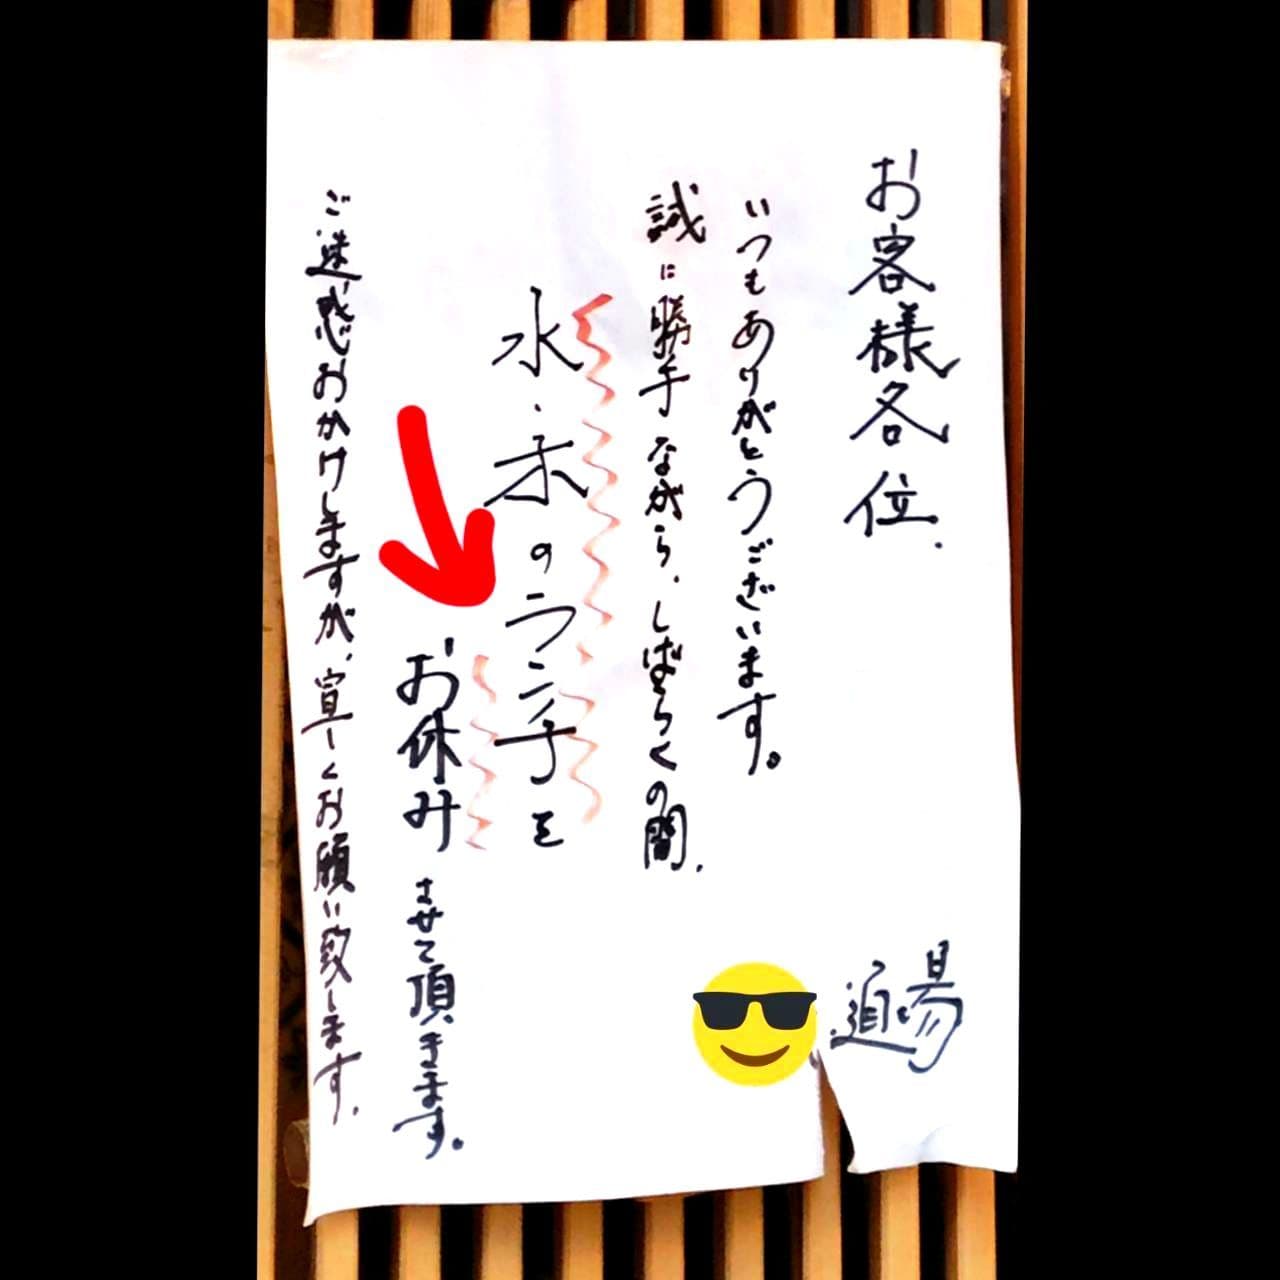 お客様各位.
いつもありがとうございます。
誠に勝手ながら、しばらくの間、
水・木のランチを
お休みさせて頂きます。
ご迷惑おかけしますが、宜しくお願い致します.
道場